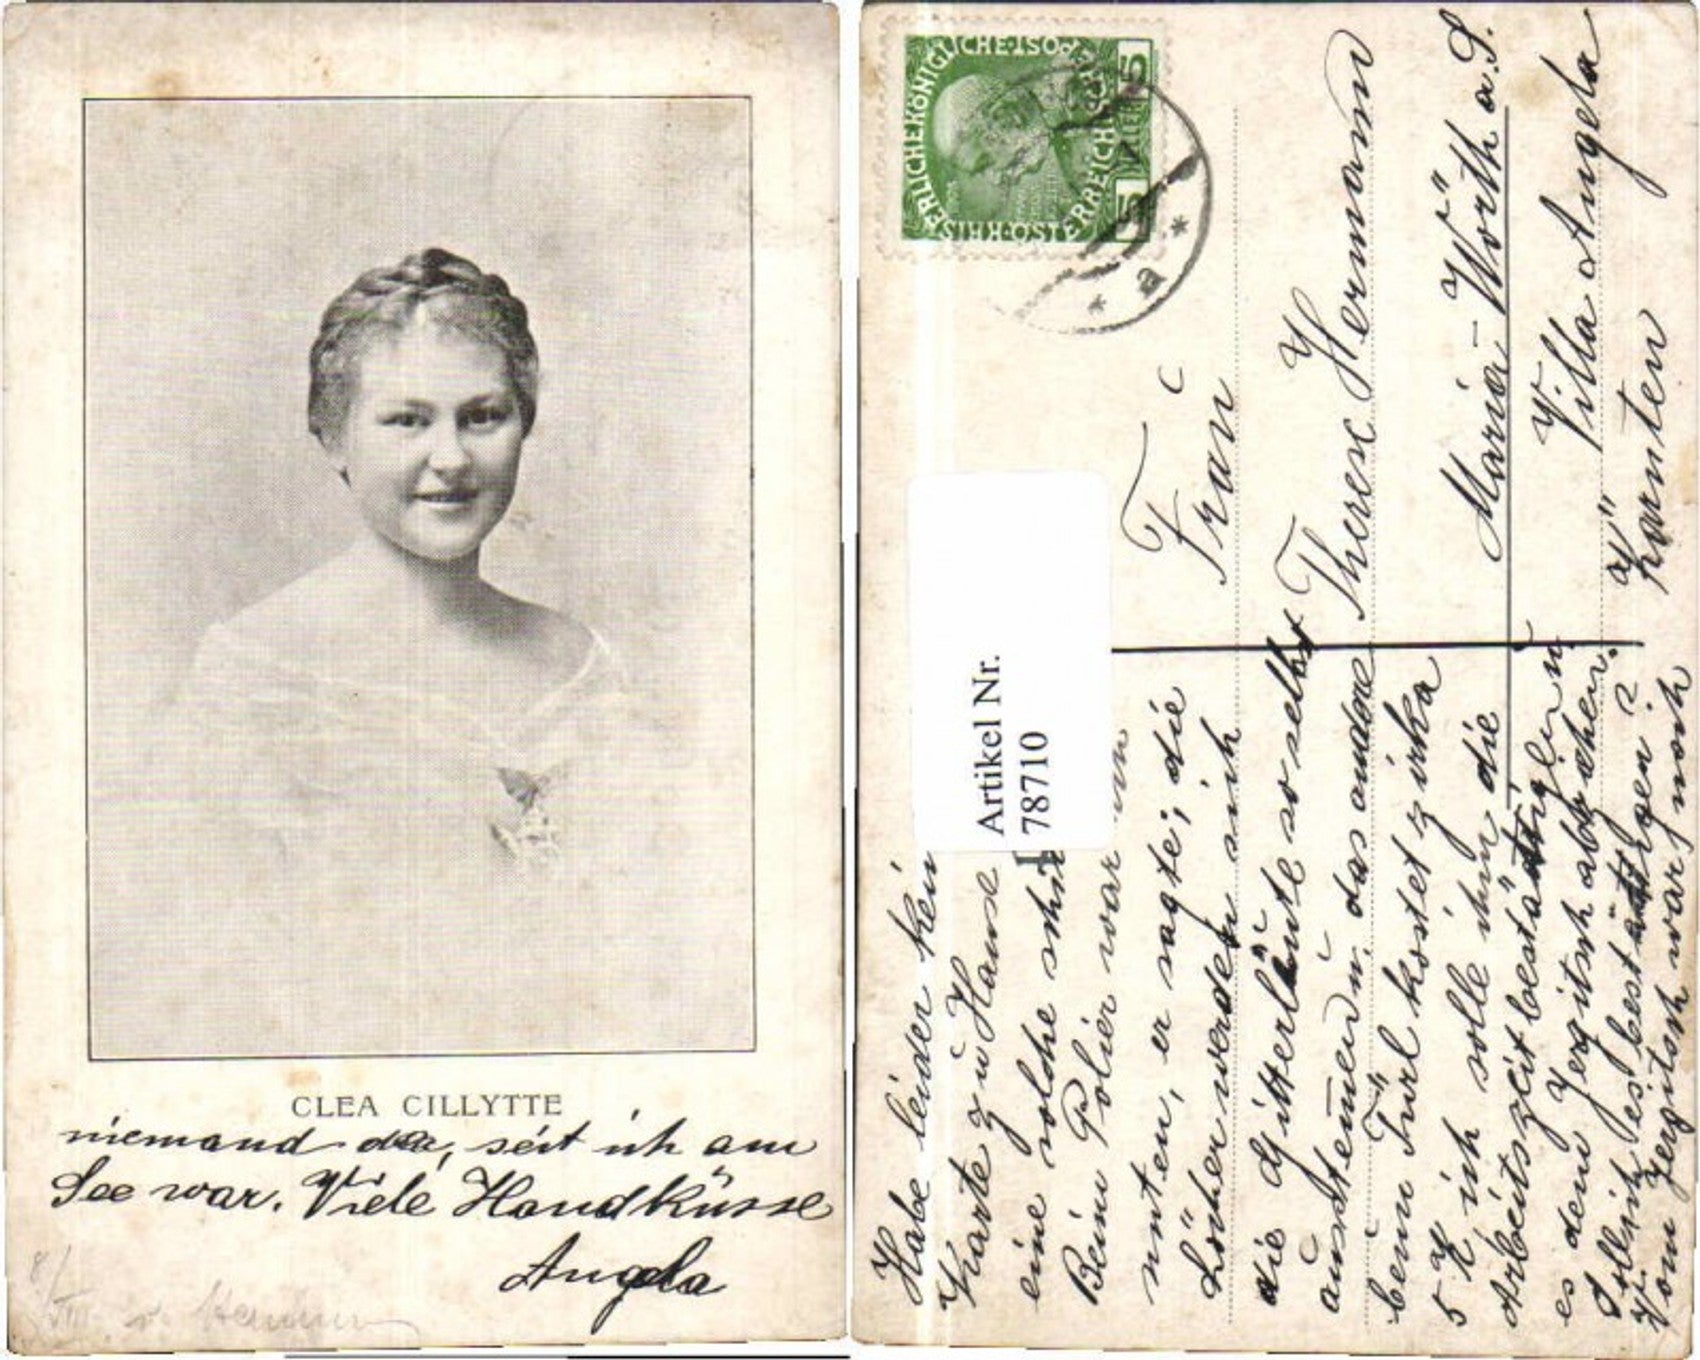 CLEA CILLYTTE
niemand da, seit ich am
See war. Viele Handküsse
Angela
8/VIII
KAISERLICHE KÖNIGLICHE
ÖSTERREICHISCHE POST
5 HELLER 5
* a *
Frau
Therese Hermann
Maria-Wörth a. S.
Villa Angela
Kärnten
Artikel Nr.
78710
Habe leider kein
Karte zu Hause
eine solche
Beim Polier war
unten, er sagte, die
Löcher werden sich
die Gitterleute so selbst
ausstemmen, das andere
beim Türl kostet zirka
5 K ich solle ihm die
Arbeitszeit bestätigen
es dem Jergitsch abziehen.
Soll ich es bestätigen?
Vom Jergitsch war noch